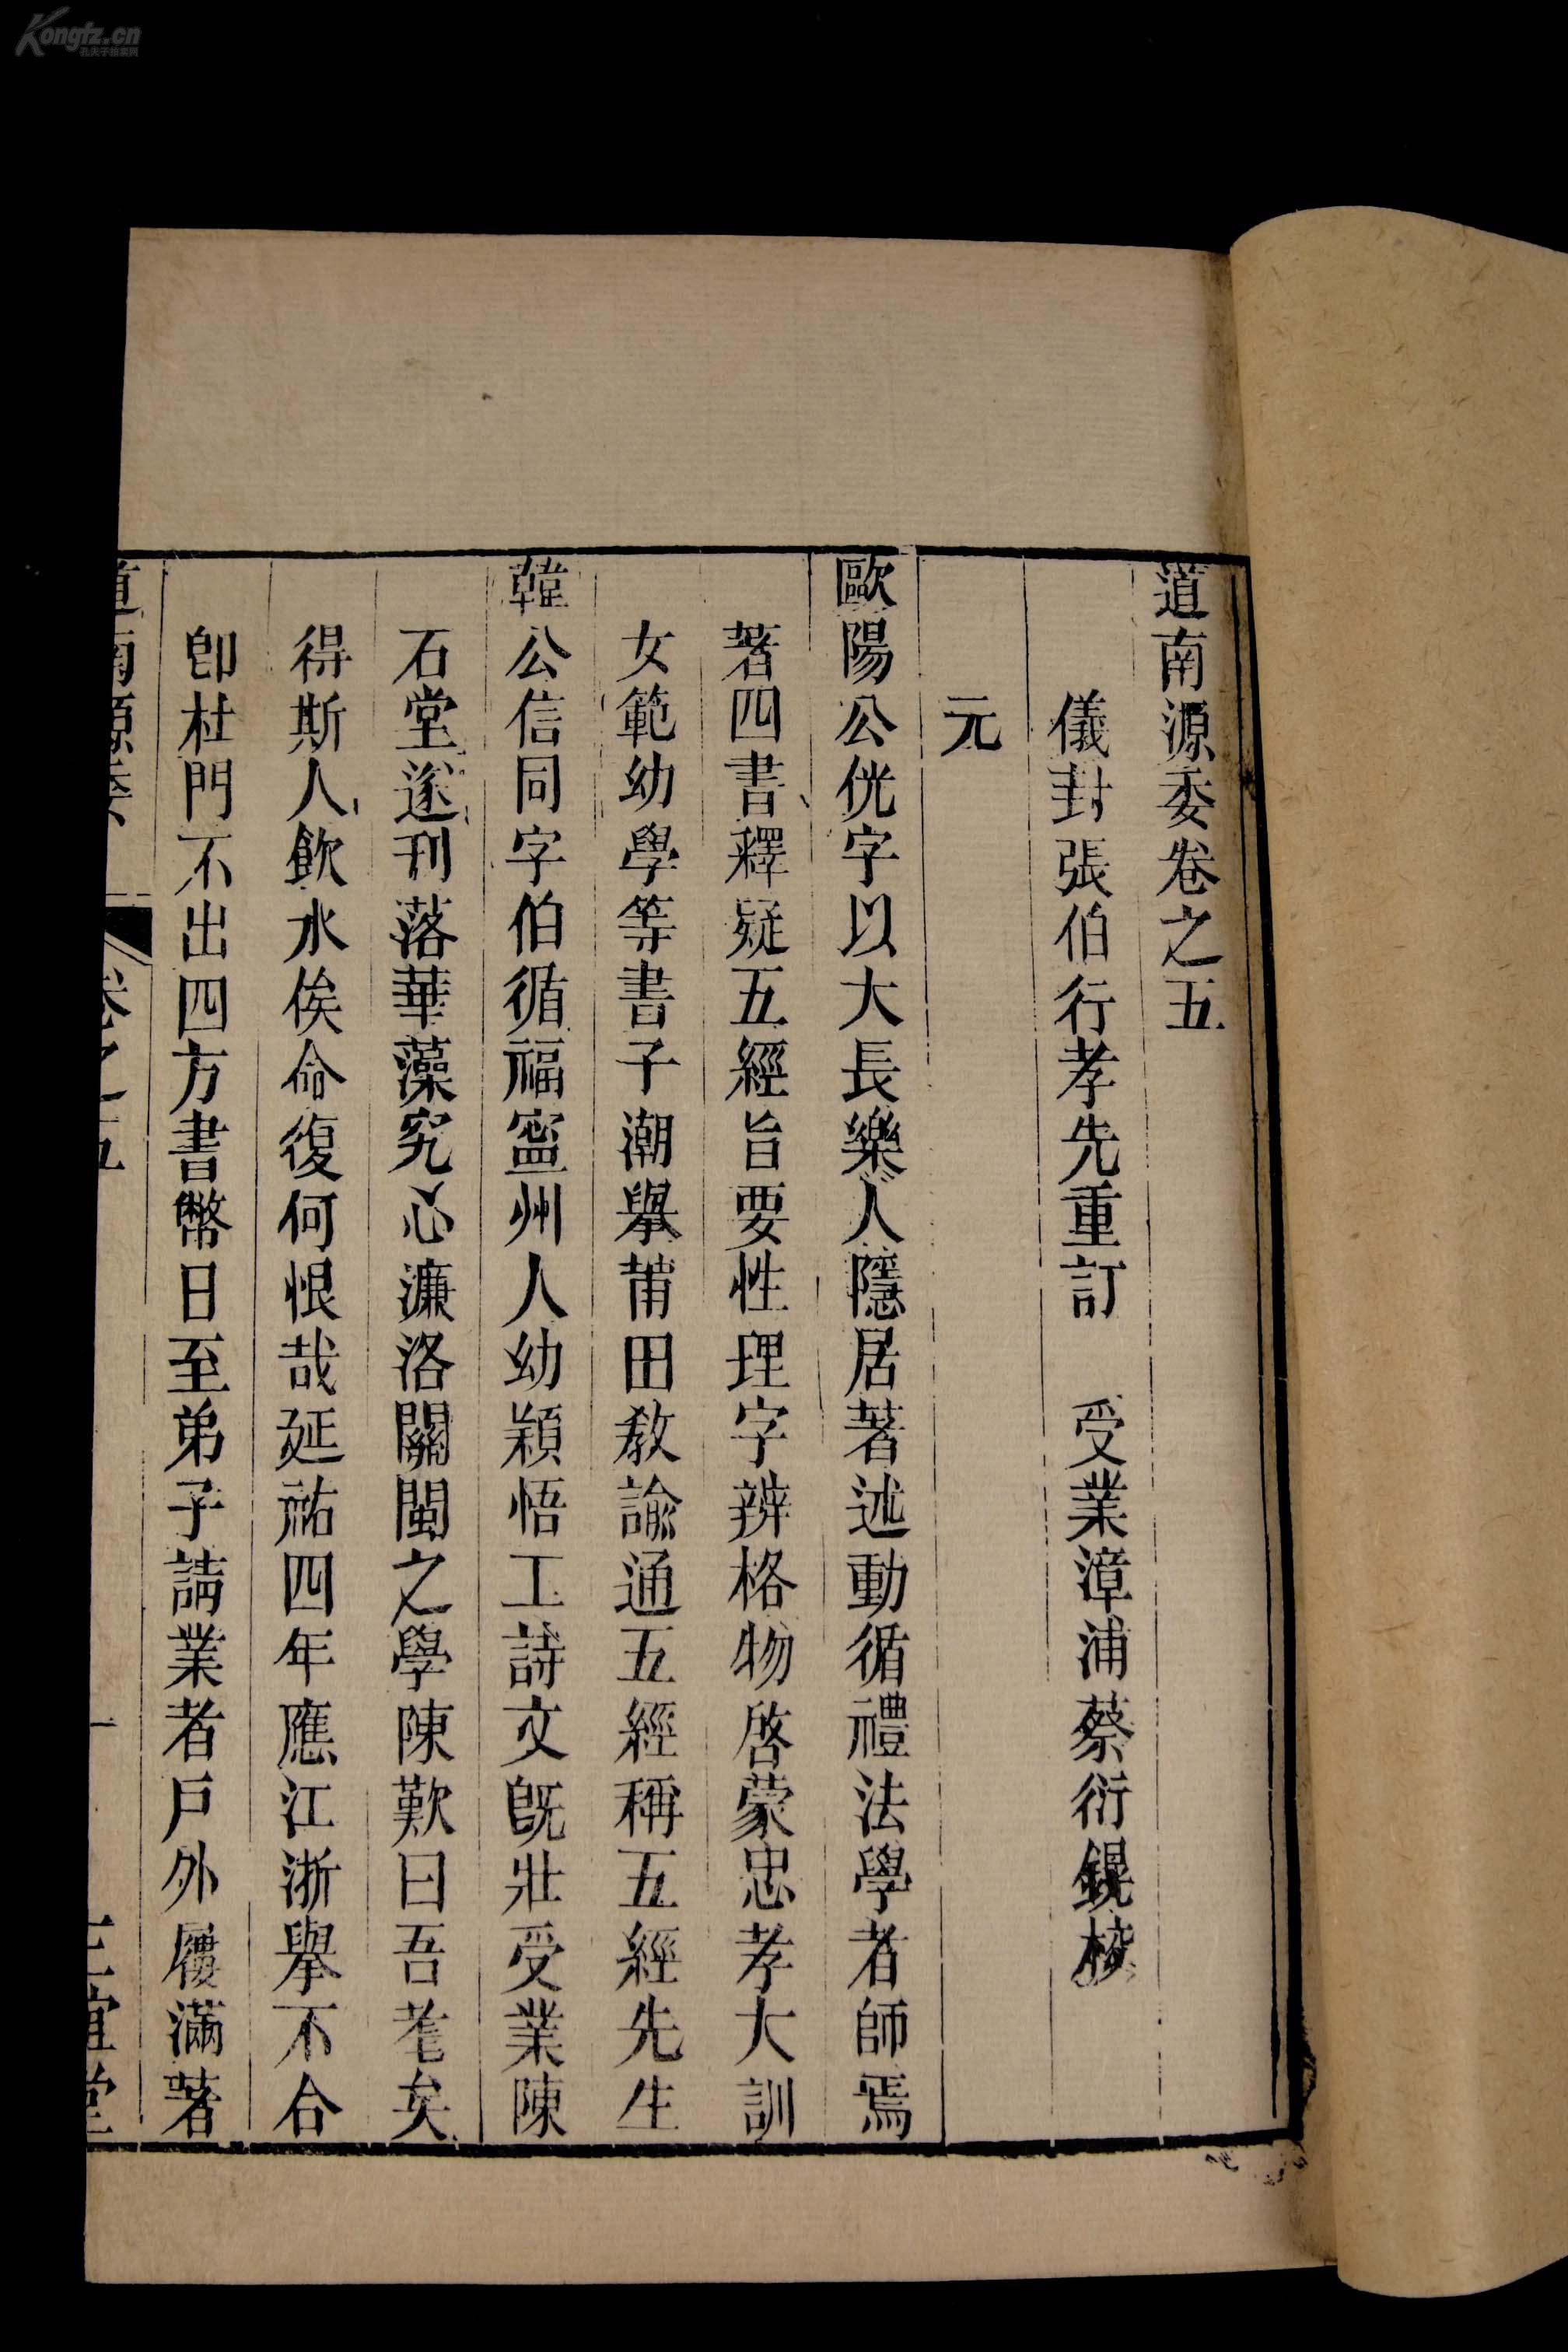 道南源委卷之五
儀封張伯行孝先重訂　受業漳浦蔡衍鎤校
元
歐陽公侊字以大長樂人隱居著述動循禮法學者師焉
著四書釋疑五經旨要性理字辨格物啓蒙忠孝大訓
女範幼學等書子潮舉莆田教諭通五經稱五經先生
韓公信同字伯循福寧州人幼穎悟工詩文旣壯受業陳
石堂遂刊落華藻究心濂洛關閩之學陳歎曰吾耄矣
得斯人飲水俟命復何恨哉延祐四年應江浙舉不合
卽杜門不出四方書幣日至弟子請業者戶外屨滿著
道南源委
卷之五
一
正誼堂
Kongfz.cn
孔夫子旧书网